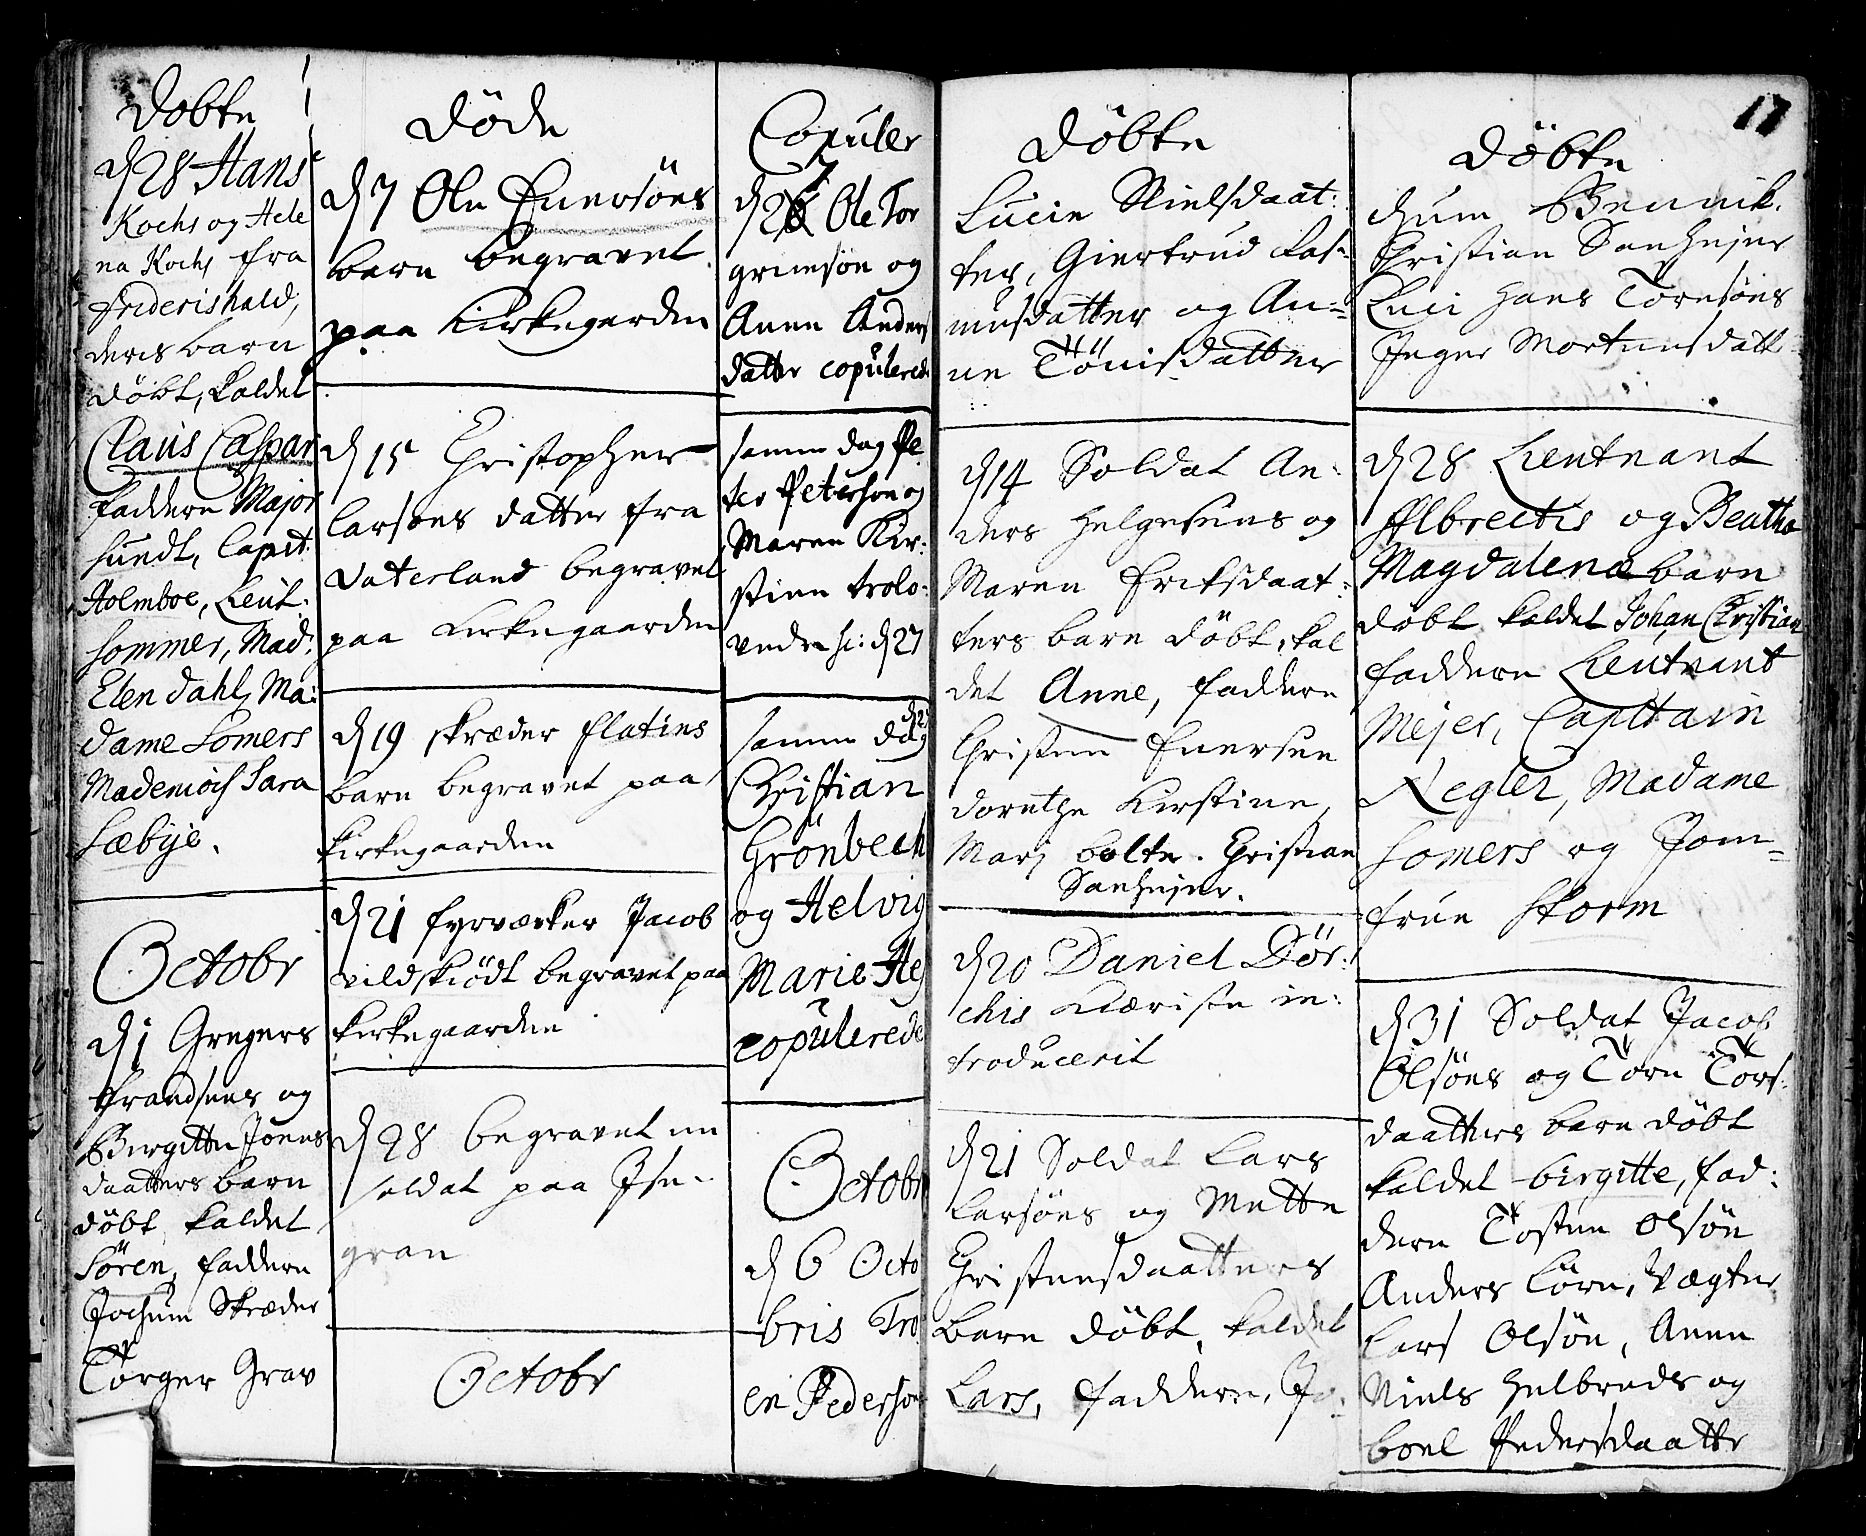 Døbte
d 28 Hans
Kochs og Hele
na Kochs fra
Friderishald,
deris barn
døbt, kaldet
Claus Caspar
faddere Major
Hundt, Capit:
Holmboe, Leut:
Sommer, Mad:
Elen Dahl, Ma:
dame Somers
Mademois Sara
Sæbye.
Octobr
d 1 Gregers
Frandsens og
Birgitte Jones
daatters barn
døbt, kaldet
Sören, faddere
Jochum Skræder
Törger Grav
Döde
d 7 Ole Euersöns
barn begravet
paa Kirkegarden
d 15 Christopher
Larsöns datter fra
Vaterland begravet
paa Kirkegaarden
d 19 skræder Flatius
barn begravet paa
Kirkegaarden
d 21 fyrværker Jacob
Vildskiödt begravet paa
Kirkegaarden
d 28 begravet en
soldat paa Ise-
gran
Octobr
Copuler
7
d 26 Ole Tor
grimsøn og
Anne Anders
datter copulered
samme dag Pe
ter Peterson og
Maren Kir:
stine trolo:
vede sc: d 27
samme dag
Christian
Grönbech
og Helvig
Marie Hey
copulerede
Octobr
d 6 Octo
bris Tro
en Pederson
Döbte
Lucie Nielsdaat:
ter, Giertrud Ras-
musdatter og An-
ne Tönisdatter
d 14 Soldat An-
ders Helgesens og
Maren Eriksdaat:
ters barn döbt, kal
det Anne, faddere
Christen Euersen
Dorethe Kirstine,
Marj bolte. Christian
Sanhejer.
d 20 Daniel Dör:
chis Kiæriste in:
troducerit
d 21 Soldat Lars
Larsöns og Mette
Christensdaatters
barn döbt, kaldet
Lars, faddere, Jo:
17
Döbte
chum Bennik.
Christian Sanhejer
Luci Hans Törnsöns
Jnger Mortensdatt
d 28 Lieutnant
Albrectis og Beatha
Magdalenæ barn
döbt kaldet Johan Christian
faddere Lieutnant
Mejer, Capittain
Negler, Madame
Somers og Jom-
frue Storm
d 31 Soldat Jacob
Olsöns og Törn Tors:
daatters barn döbt
kaldet birgitte, fad:
dere Tosten Olsön
Anders Törn, Vægter
Lars Olsön, Anne
Niels Helbreds og
boel Pedersdaatter